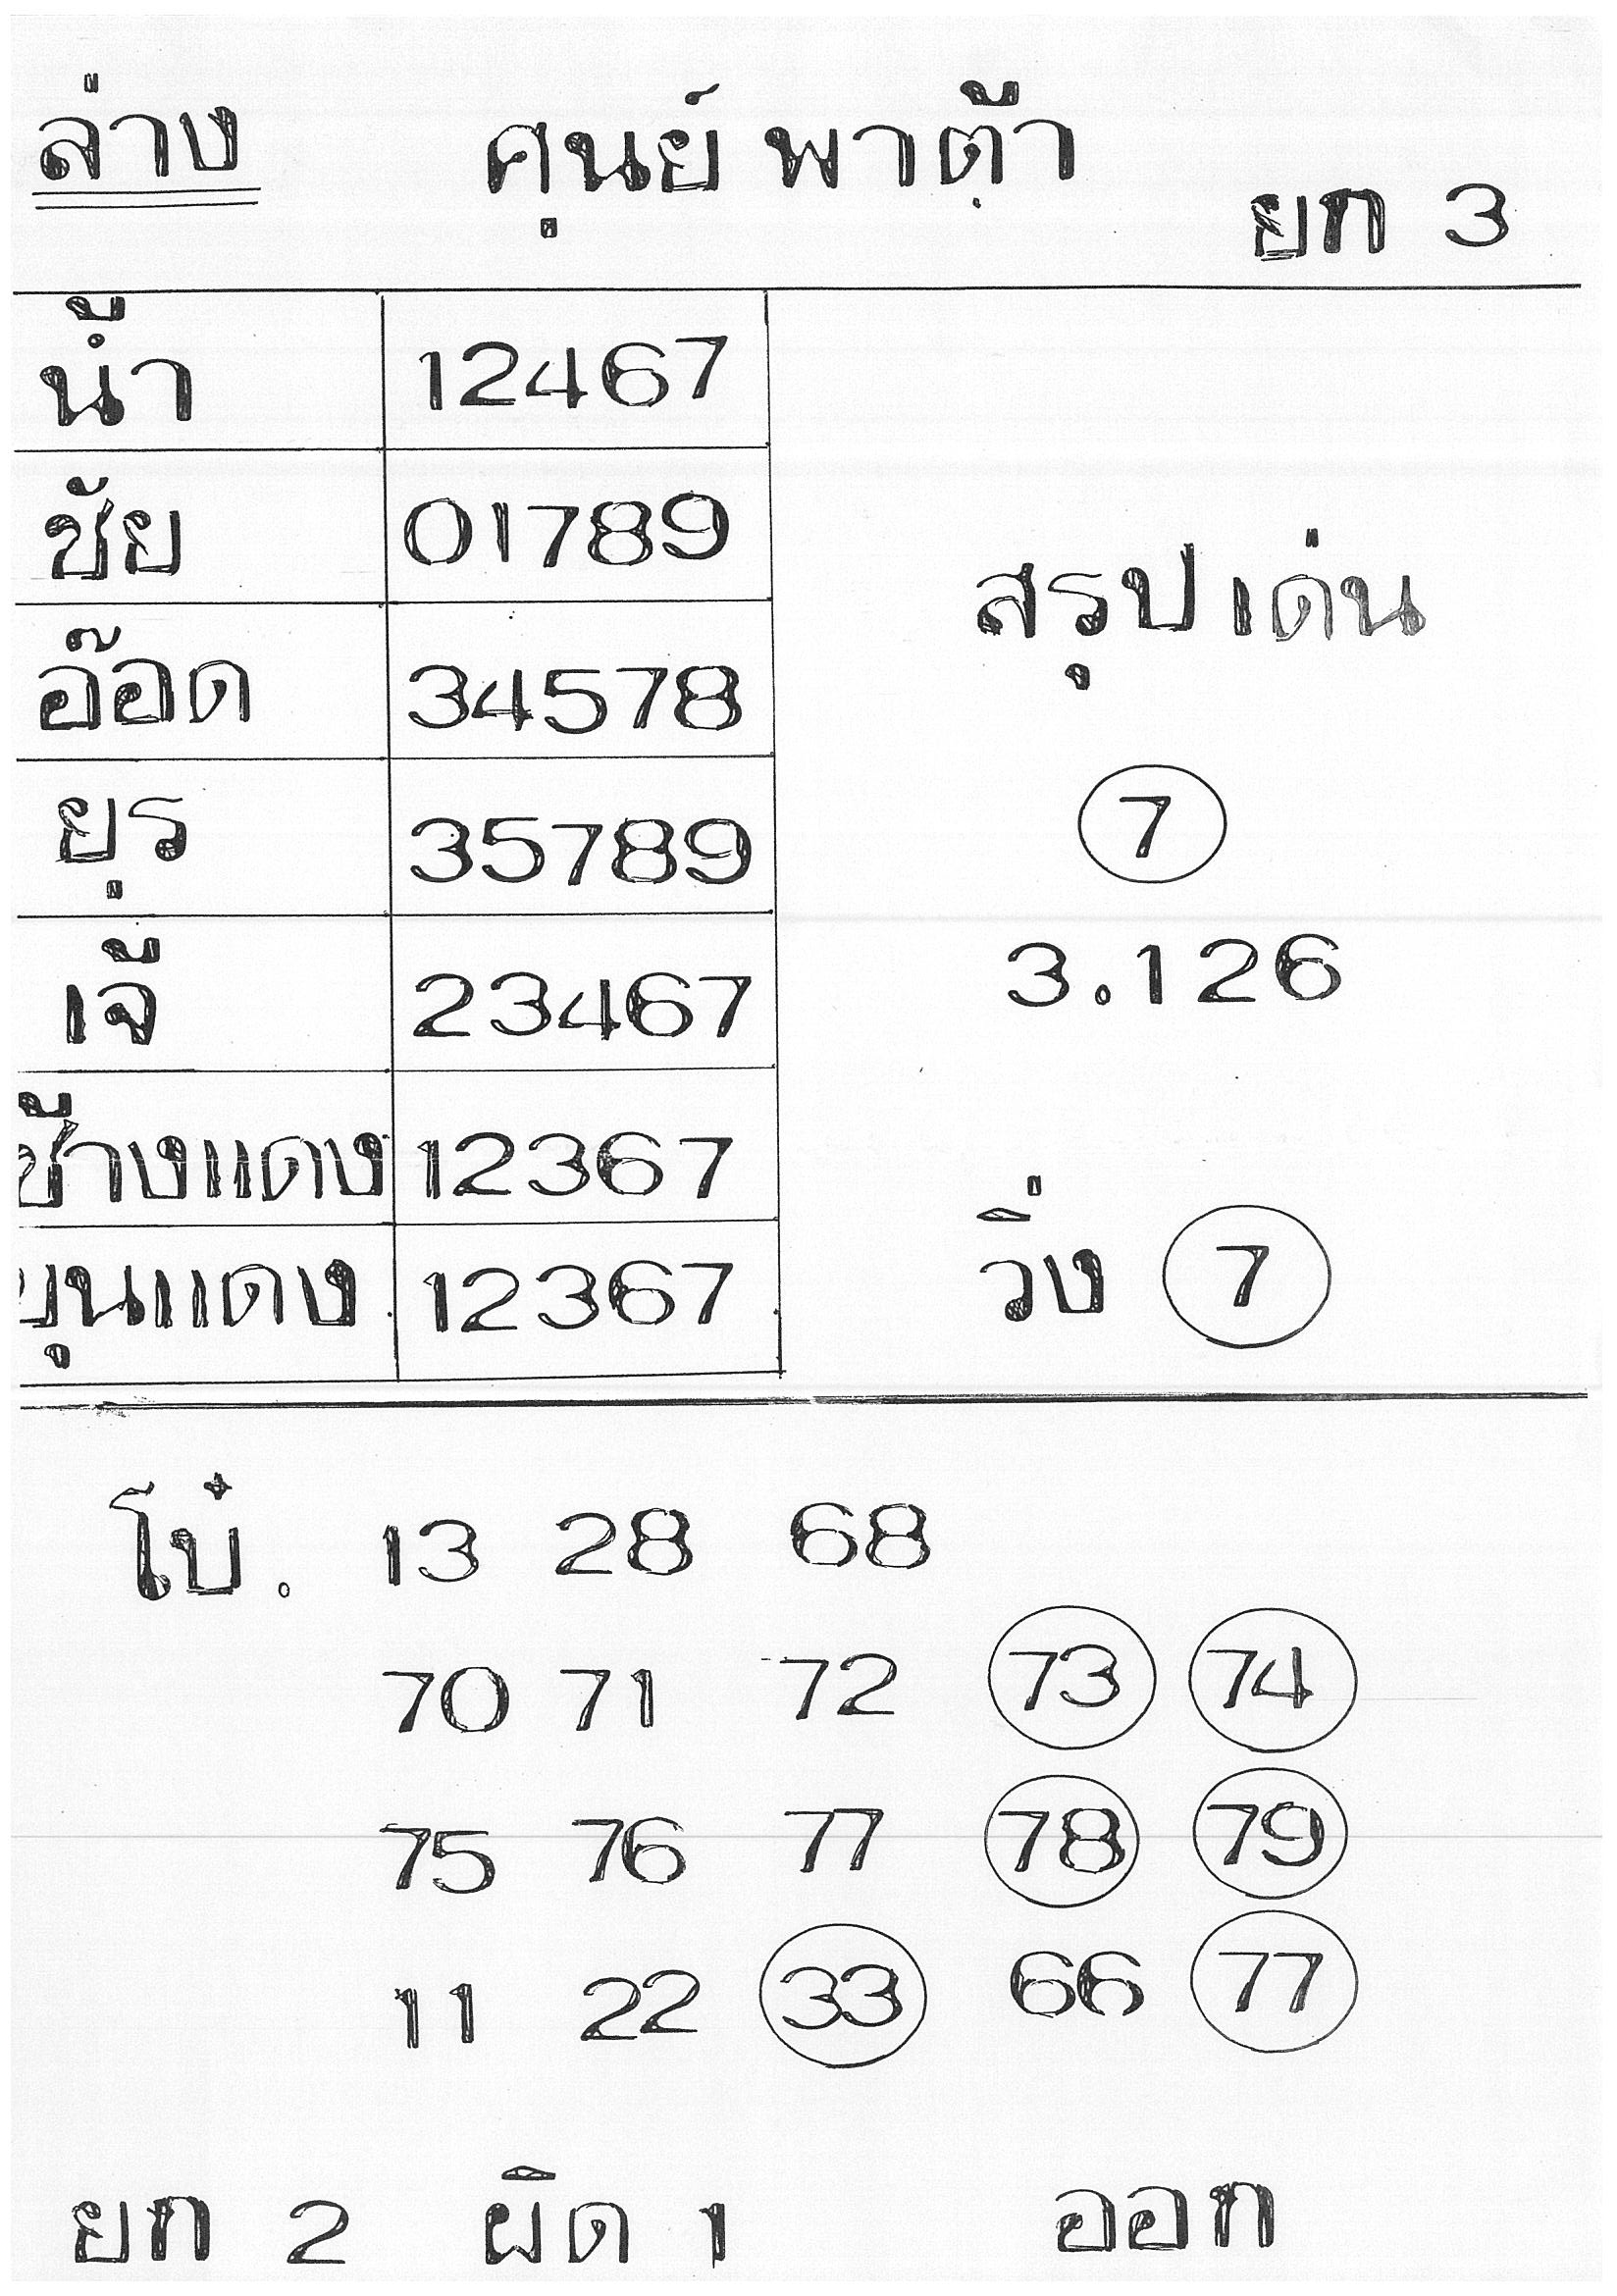 ล่าง ศูนย์ พาต้า ยก 3
น้ำ 12467
ชัย 01789
อ๊อด 34578
ยุร 35789
เจ้ 23467
ช้างแดง 12367
ขุนแดง 12367
สรุป เด่น
7
3.126
วิ่ง 7
โบ๋. 13 28 68
70 71 72 73 74
75 76 77 78 79
11 22 33 66 77
ยก 2 ผิด 1 ออก